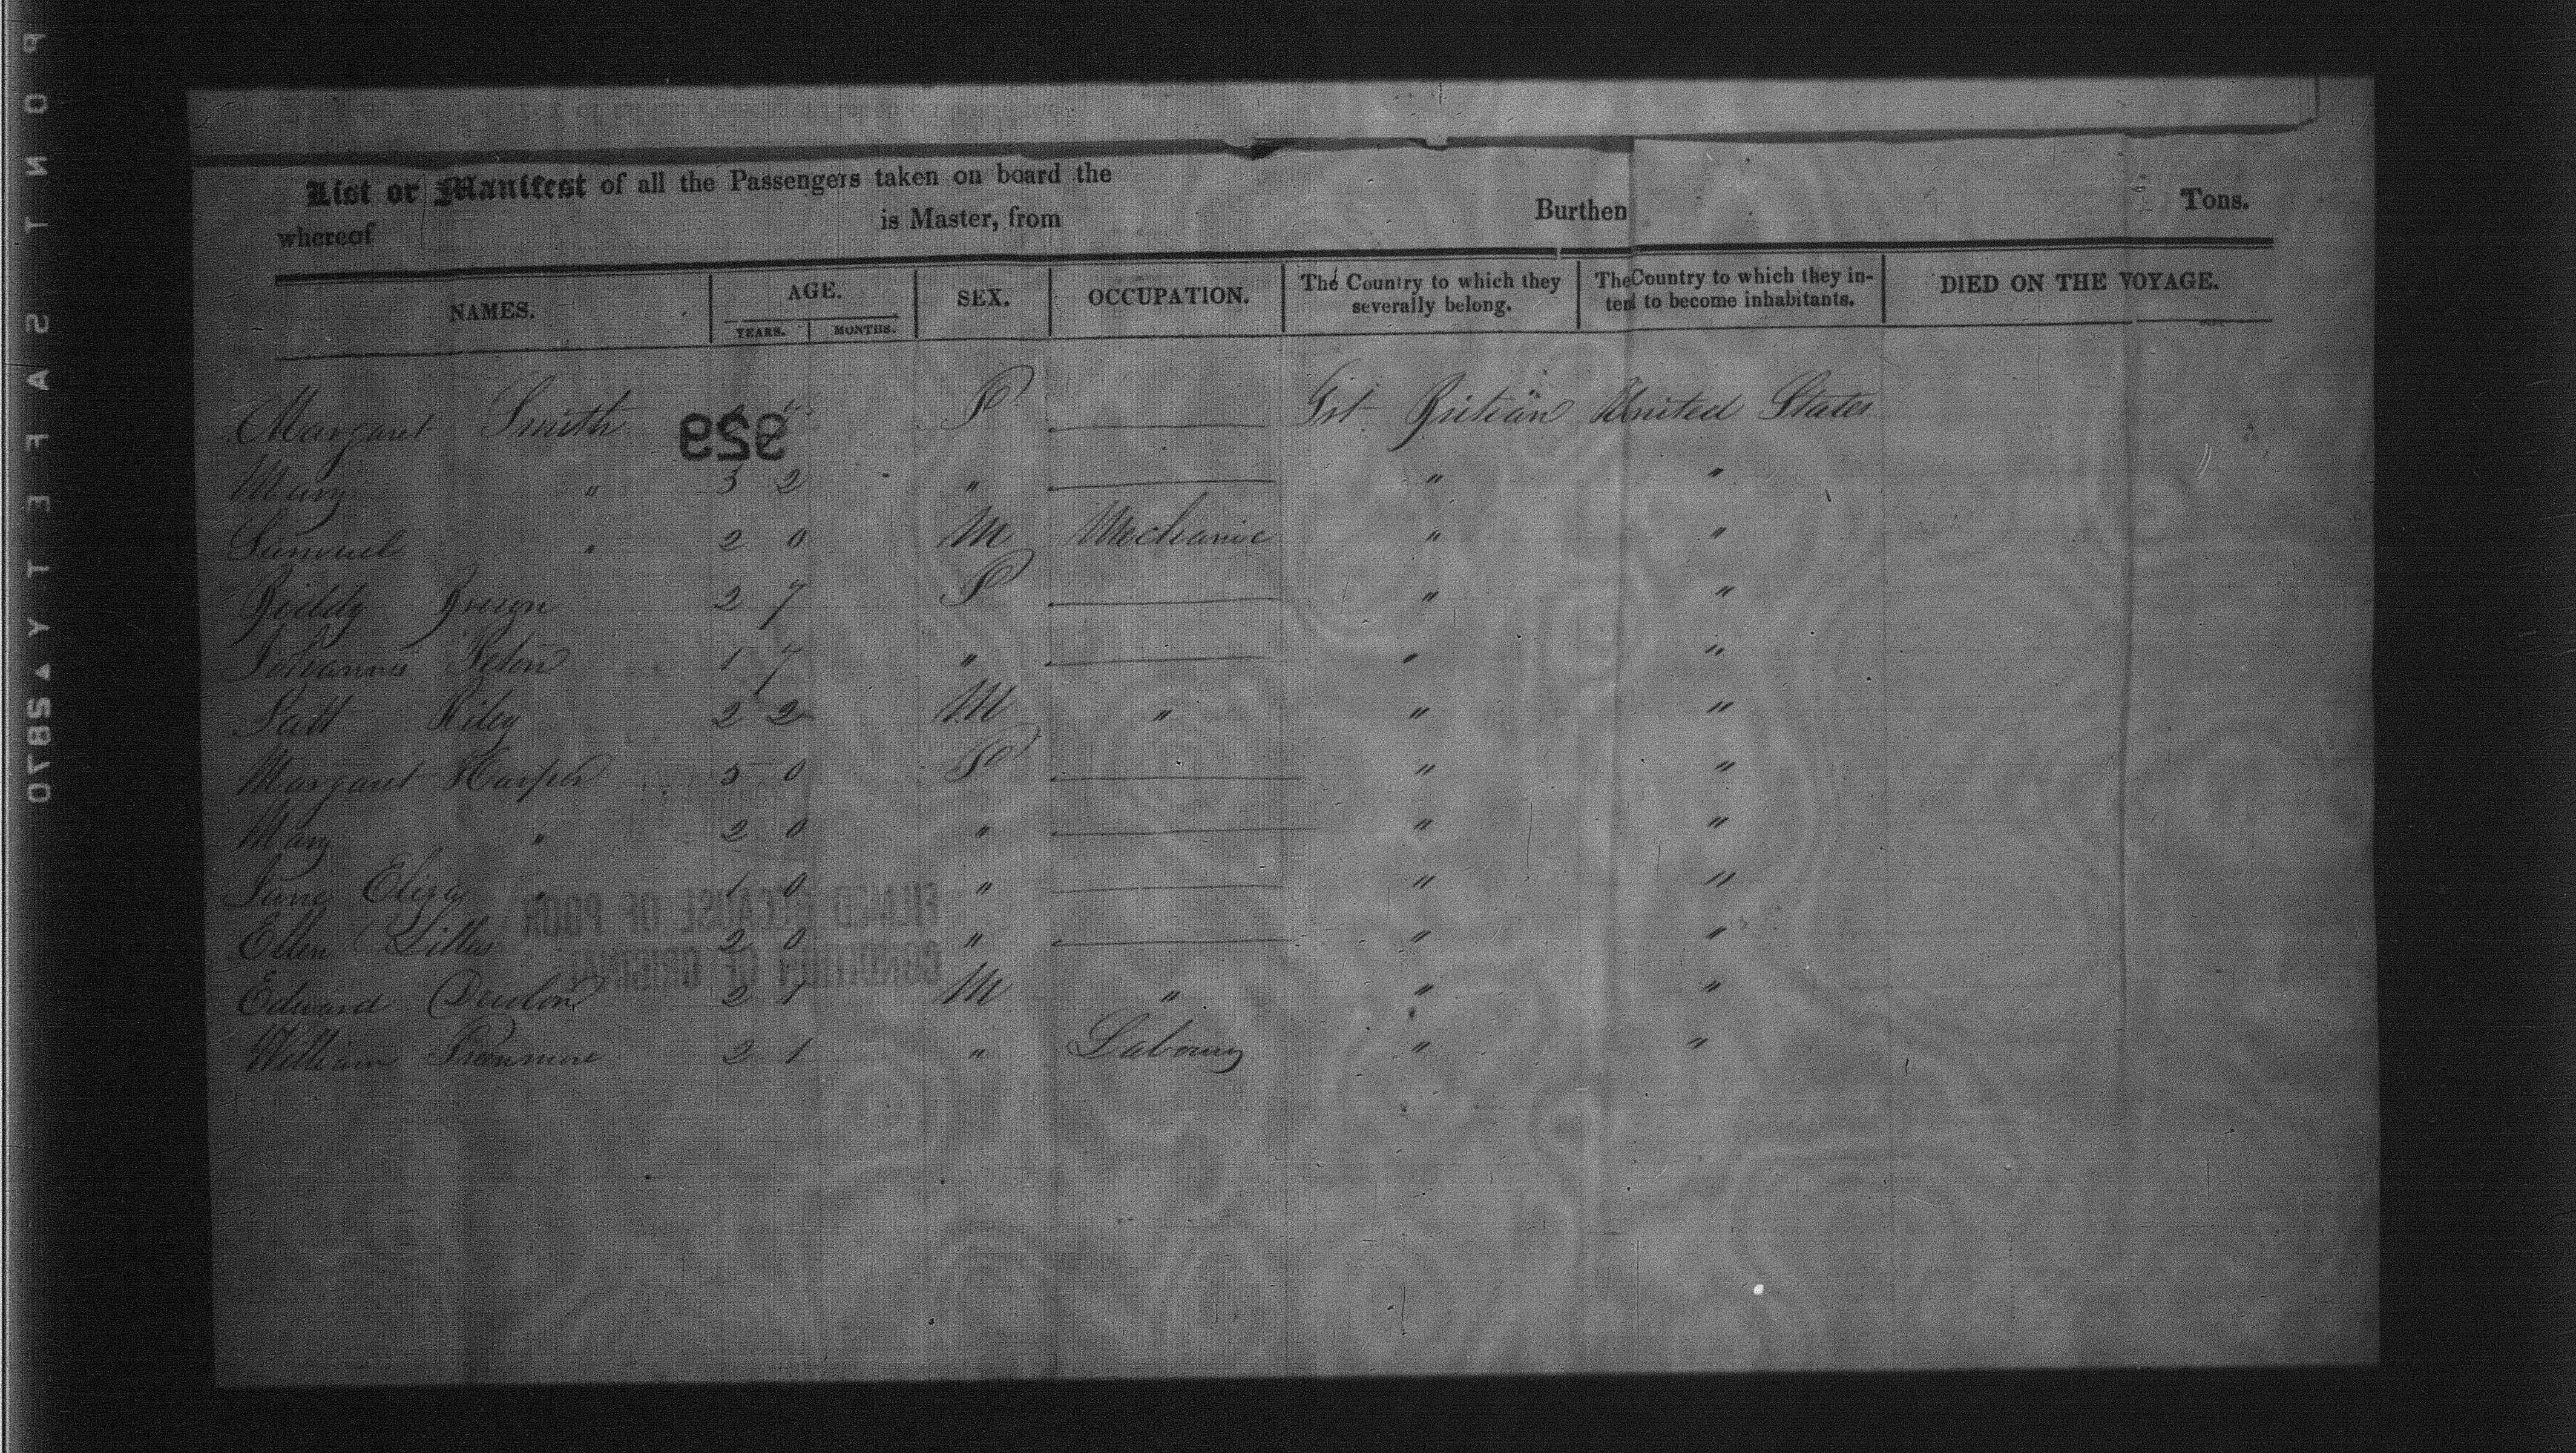 List or Manifest of all the Passengers taken on board the
whereof is Master, from Burthen Tons.
NAMES. AGE. YEARS. MONTHS. SEX. OCCUPATION. The Country to which they severally belong. The Country to which they intend to become inhabitants. DIED ON THE VOYAGE.
Margaret Smith F Grt Britian United States
329
Mary " 3 2 " " "
Samuel " 2 0 M Mechanic " "
Biddy 2 7 F " "
1 7 " " "
Riley 2 2 M " " "
Margaret Harper 5 0 F " "
Mary " 2 0 " " "
Jane Eliza " 1 0 " " "
Ellen 2 0 " " "
Edward 2 1 M " " "
William 2 1 " " "
FILMED BECAUSE OF POOR
CONDITION OF ORIGINAL
0785▲YTEFAS TNOP